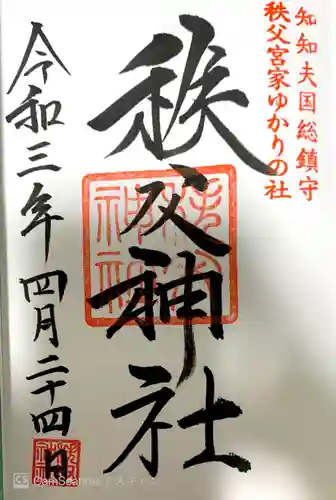 知知夫国総鎮守
秩父宮家ゆかりの社
秩父神社
令和三年四月二十四日
秩父神社
CS CamScanner